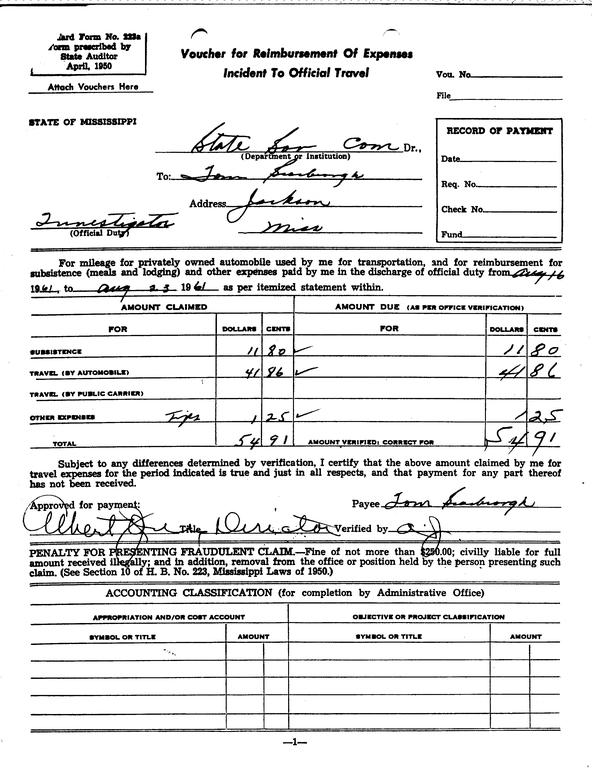 ard Form No. 223a
orm prescribed by
State Auditor
April, 1950
Attach Vouchers Here
Voucher for Reimbursement Of Expenses
Incident To Official Travel
Vou. No.
File
STATE OF MISSISSIPPI
State Sov Com Dr.,
(Department or Institution)
To: Tom Scarbrough
Address Jackson
Miss
Investigator
(Official Duty)
RECORD OF PAYMENT
Date
Req. No.
Check No.
Fund
For mileage for privately owned automobile used by me for transportation, and for reimbursement for
subsistence (meals and lodging) and other expenses paid by me in the discharge of official duty from Aug 16
1961, to Aug 23 1961 as per itemized statement within.
AMOUNT CLAIMED AMOUNT DUE (AS PER OFFICE VERIFICATION)
FOR DOLLARS CENTS FOR DOLLARS CENTS
SUBSISTENCE 11 80 ✓ 11 80
TRAVEL (BY AUTOMOBILE) 41 86 ✓ 41 86
TRAVEL (BY PUBLIC CARRIER)
OTHER EXPENSES Tips 1 25 ✓ 1 25
TOTAL 54 91 AMOUNT VERIFIED: CORRECT FOR 54 91
Subject to any differences determined by verification, I certify that the above amount claimed by me for
travel expenses for the period indicated is true and just in all respects, and that payment for any part thereof
has not been received.
Approved for payment: Payee Tom Scarbrough
Albert Title Director Verified by a J
PENALTY FOR PRESENTING FRAUDULENT CLAIM.—Fine of not more than $250.00; civilly liable for full
amount received illegally; and in addition, removal from the office or position held by the person presenting such
claim. (See Section 10 of H. B. No. 223, Mississippi Laws of 1950.)
ACCOUNTING CLASSIFICATION (for completion by Administrative Office)
APPROPRIATION AND/OR COST ACCOUNT OBJECTIVE OR PROJECT CLASSIFICATION
SYMBOL OR TITLE AMOUNT SYMBOL OR TITLE AMOUNT
—1—